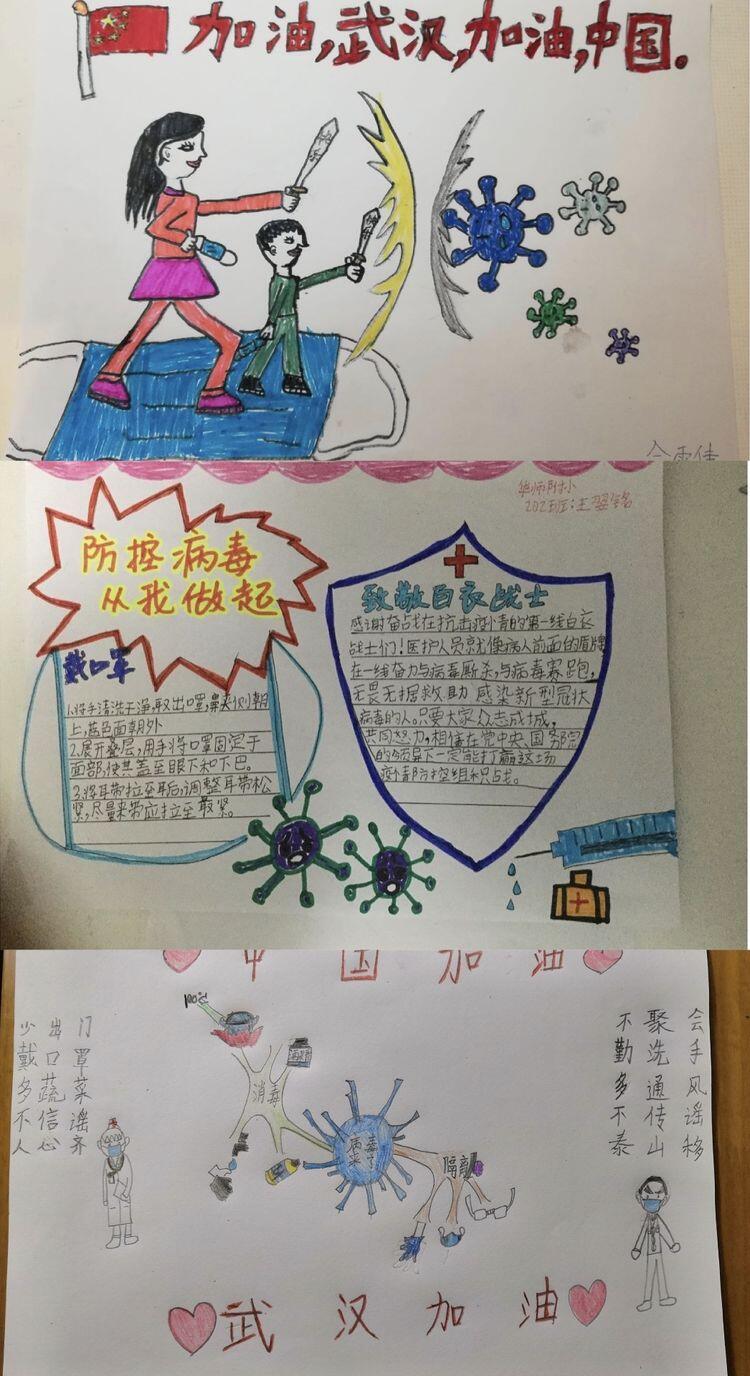 加油,武汉,加油,中国。
华师附小
202班:王
防控病毒
从我做起
戴口罩
1.将手清洗干净,取出口罩,鼻夹侧朝
上,蓝色面朝外
2.展开叠层,用手将口罩固定于
面部,使其盖至眼下和下巴。
3.将耳带拉至耳后,调整耳带松
紧,尽量来带应拉至最紧。
致敬白衣战士
感谢奋战在抗击疫情的第一线白衣
战士们!医护人员就像病人前面的盾牌
在一线奋力与病毒厮杀,与病毒赛跑,
无畏无据救助 感染新型冠状
病毒的人。只要大家众志成城,
共同努力,相信在党中央、国务院
的领导下一定能打赢这场
疫情防控组织战。
中国加油
少出门
戴口罩
多蔬菜
不信谣
人心齐
不聚会
勤洗手
多通风
不传谣
泰山移
100℃
消毒
酒精
病毒
来了
隔离
武汉加油